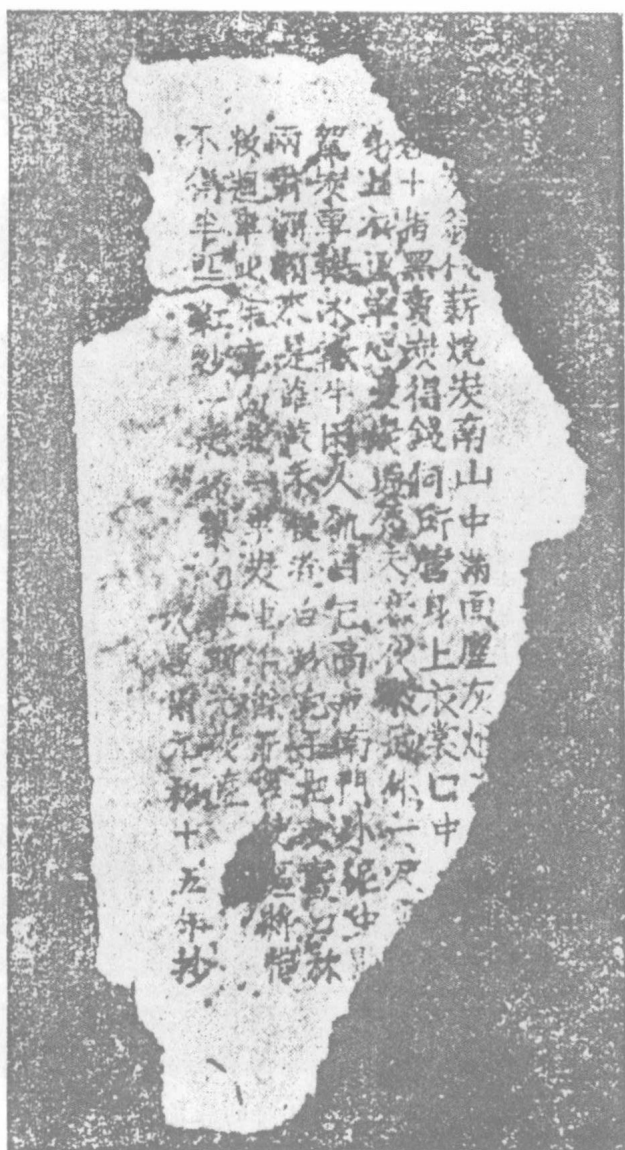 翁伐薪燒炭南山中滿面塵灰
十指黑賣炭得錢何所營身上衣裳口中
身上衣正單心憂炭願天寒夜來城外一尺
駕炭車輾冰轍牛困人飢日已高市南門外泥中
兩騎翩翩來是誰黃衣使者白衫兒手把文書口称
敕迴車叱牛牽向北一車炭重千餘斤官使驅將惜
不得半匹紅紗一丈綾繫向牛頭充炭直
坎曼爾元和十五年抄